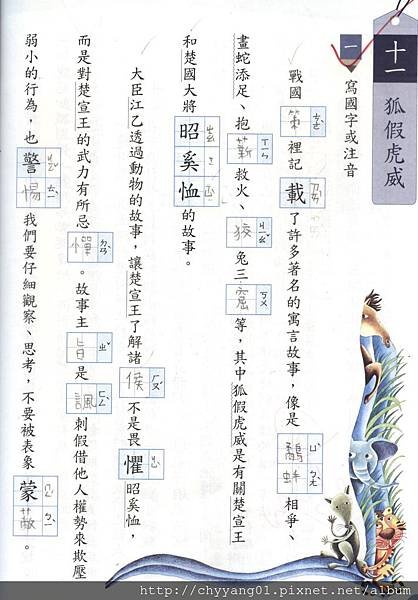 十一 狐假虎威
一 寫國字或注音
戰國策ㄘㄜˋ裡記載ㄗㄞˇ了許多著名的寓言故事,像是鷸ㄩˋ蚌ㄅㄤˋ相爭、
畫蛇添足、抱薪ㄒㄧㄣ救火、狡ㄐㄧㄠˇ兔三窟ㄎㄨ等,其中狐假虎威是有關楚宣王
和楚國大將昭奚恤的故事。
大臣江乙透過動物的故事,讓楚宣王了解諸侯ㄏㄡˊ不是畏懼昭奚恤,
而是對楚宣王的武力有所忌憚ㄉㄢˋ。故事主旨ㄓˇ是諷ㄈㄥˋ刺假借他人權勢來欺壓
弱小的行為,也警惕ㄊㄧˋ我們要仔細觀察、思考,不要被表象蒙蔽ㄅㄧˋ。
http://chyyang01.pixnet.net/album